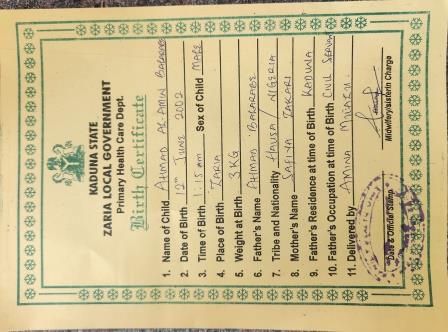 KADUNA STATE
ZARIA LOCAL GOVERNMENT
Primary Health Care Dept.
Birth Certificate
1. Name of Child AHMAD AL AMIN BABARABE
2. Date of Birth 12th JUNE 2002
3. Time of Birth 1:15am Sex of Child MALE
4. Place of Birth ZARIA
5. Weight at Birth 3KG
6. Father's Name AHMAD BABARABE
7. Tribe and Nationality HAUSA / NIGERIA
8. Mother's Name SAFIYA ZAKARI
9. Father's Residence at time of Birth KADUNA
10. Father's Occupation at time of Birth CIVIL SERVANT
11. Delivered by AMINA
Date & Official Stamp
Midwifery/sisterin Charge